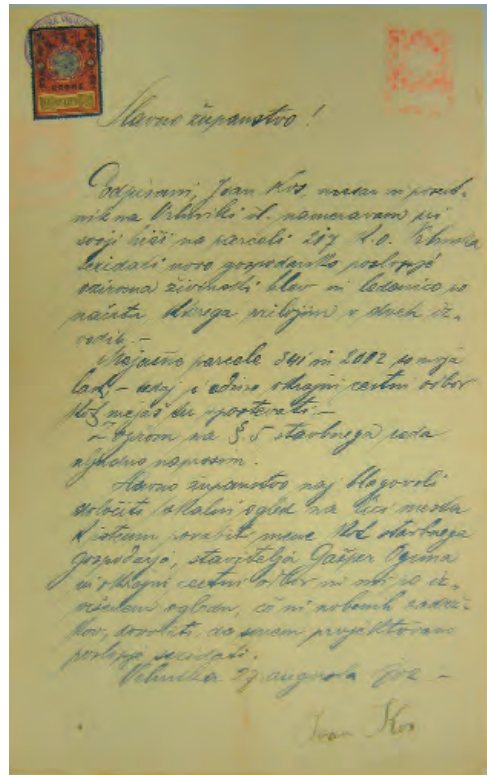 Slavno županstvo!
Podpisani, Ivan Kos, mesar in posest-
nik na Vrhniki št. nameravam pri
svoji hiši na parceli 217 k.o. Vrhnika
sezidati novo gospodarsko poslopje
oziroma živinski hlev in ledenico po
načrtu kterega priložim v dveh iz-
vodih. –
Mejašne parcele 341 in 2002 so moja
last – tedaj je edino okrajni cestni odbor
kot mejaš za upoštevati. –
Oprom na §. 5 stavbnega reda
uljudno naprosam.
Slavno županstvo naj blagovoli
določiti lokalni ogled na lici mesta
k istemu povabiti mene kot stavbnega
gospodarja, stavitelja Gašper Ogrina
in okrajni cestni odbor in mi po iz-
vršenem ogledu, če ni nobenih zadrž-
kov, dovoliti, da smem projektovano
poslopje sezidati.
Vrhnika 27 augusta
Ivan Kos